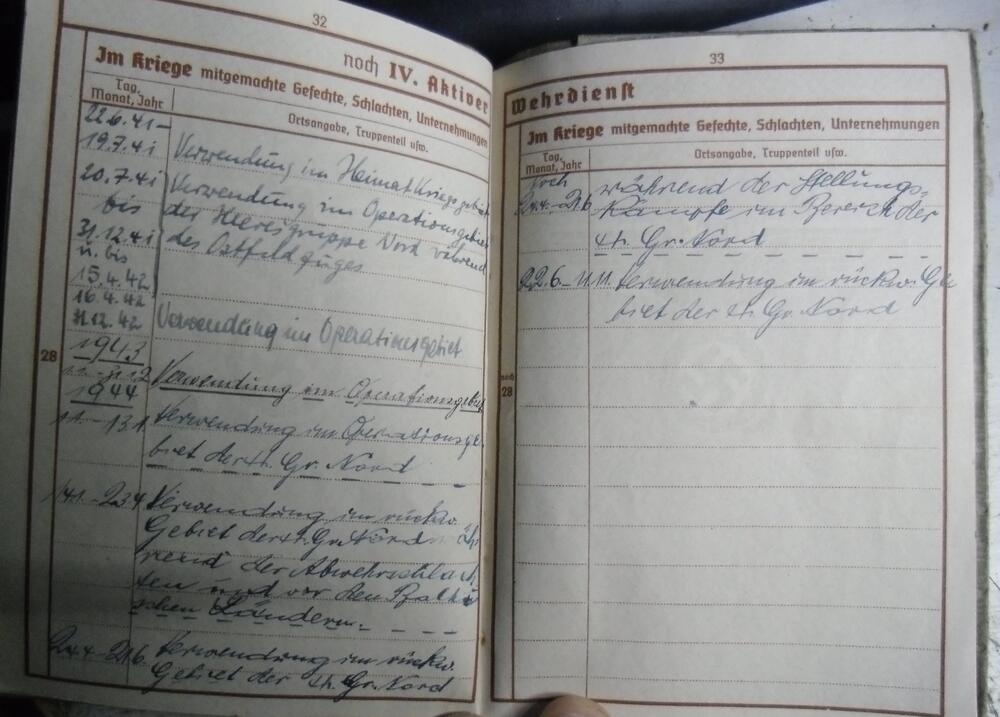 32
noch IV. Aktiver
Im Kriege mitgemachte Gefechte, Schlachten, Unternehmungen
Tag, Monat, Jahr
Ortsangabe, Truppenteil usw.
22.6.41-
19.7.41 Verwendung im Heimatkriegsgebiet
20.7.41 Verwendung im Operationsgebiet
bis der Heeresgruppe Nord während
31.12.41 des Ostfeldzuges
u. bis
15.4.42
16.4.42
31.12.42 Verwendung im Operationsgebiet
28
1943
1.1.-31.12 Verwendung im Operationsgebiet
1944
1.1.-13.1 Verwendung im Operationsge-
biet der H. Gr. Nord
14.1.-23.4 Verwendung im rückw.
Gebiet der H. Gr. Nord wäh-
rend der Abwehrschlach-
ten und vor den Balti-
schen Ländern.
24.4-21.6. Verwendung im rückw.
Gebiet der H. Gr. Nord
33
Wehrdienst
Im Kriege mitgemachte Gefechte, Schlachten, Unternehmungen
Tag, Monat, Jahr
Ortsangabe, Truppenteil usw.
Noch
24.4.-21.6 während der Stellungs-
kämpfe im Bereich der
H. Gr. Nord
22.6.-11.11. Verwendung im rückw. Ge
biet der H. Gr. Nord
noch
28